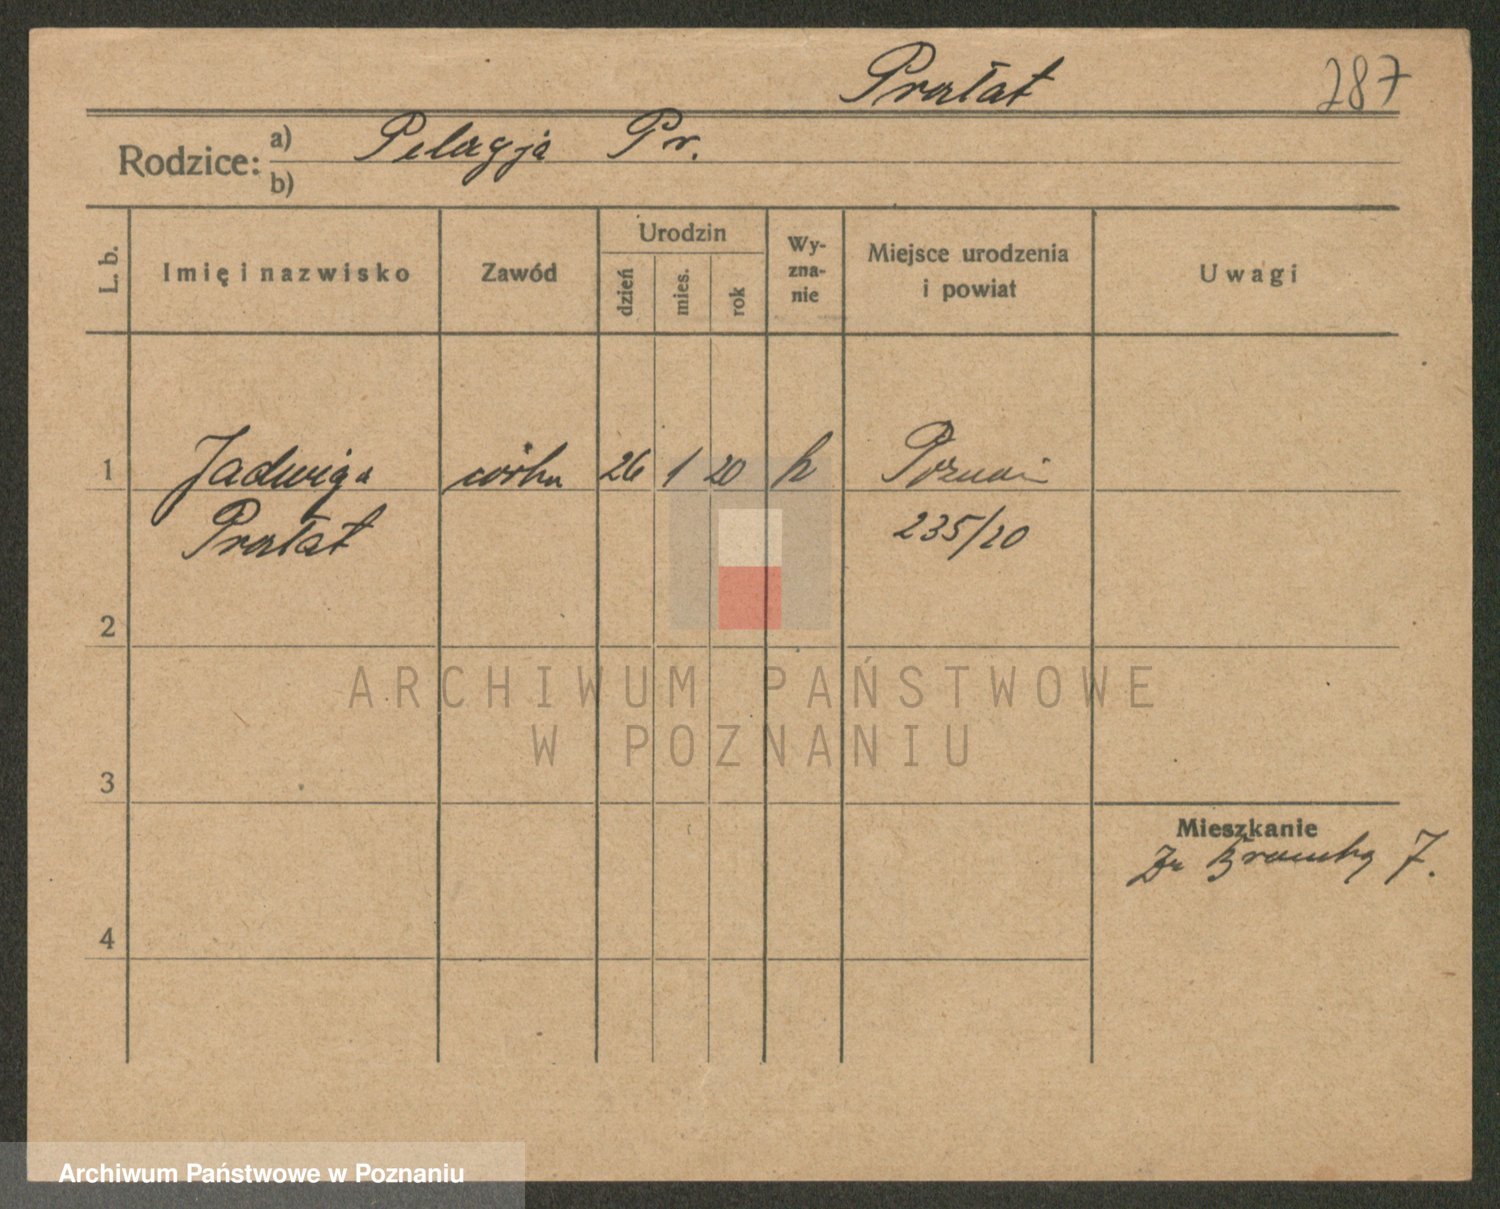 Prałat 287
Rodzice: a) Pelagja Pr.
b)
L. b. Imię i nazwisko Zawód Urodzin dzień mies. rok Wyznanie Miejsce urodzenia i powiat Uwagi
1 Jadwiga córka 26 1 20 k Poznań
Prałat 235/20
2
ARCHIWUM PAŃSTWOWE
W POZNANIU
3
Mieszkanie
Za Bramką 7.
4
Archiwum Państwowe w Poznaniu